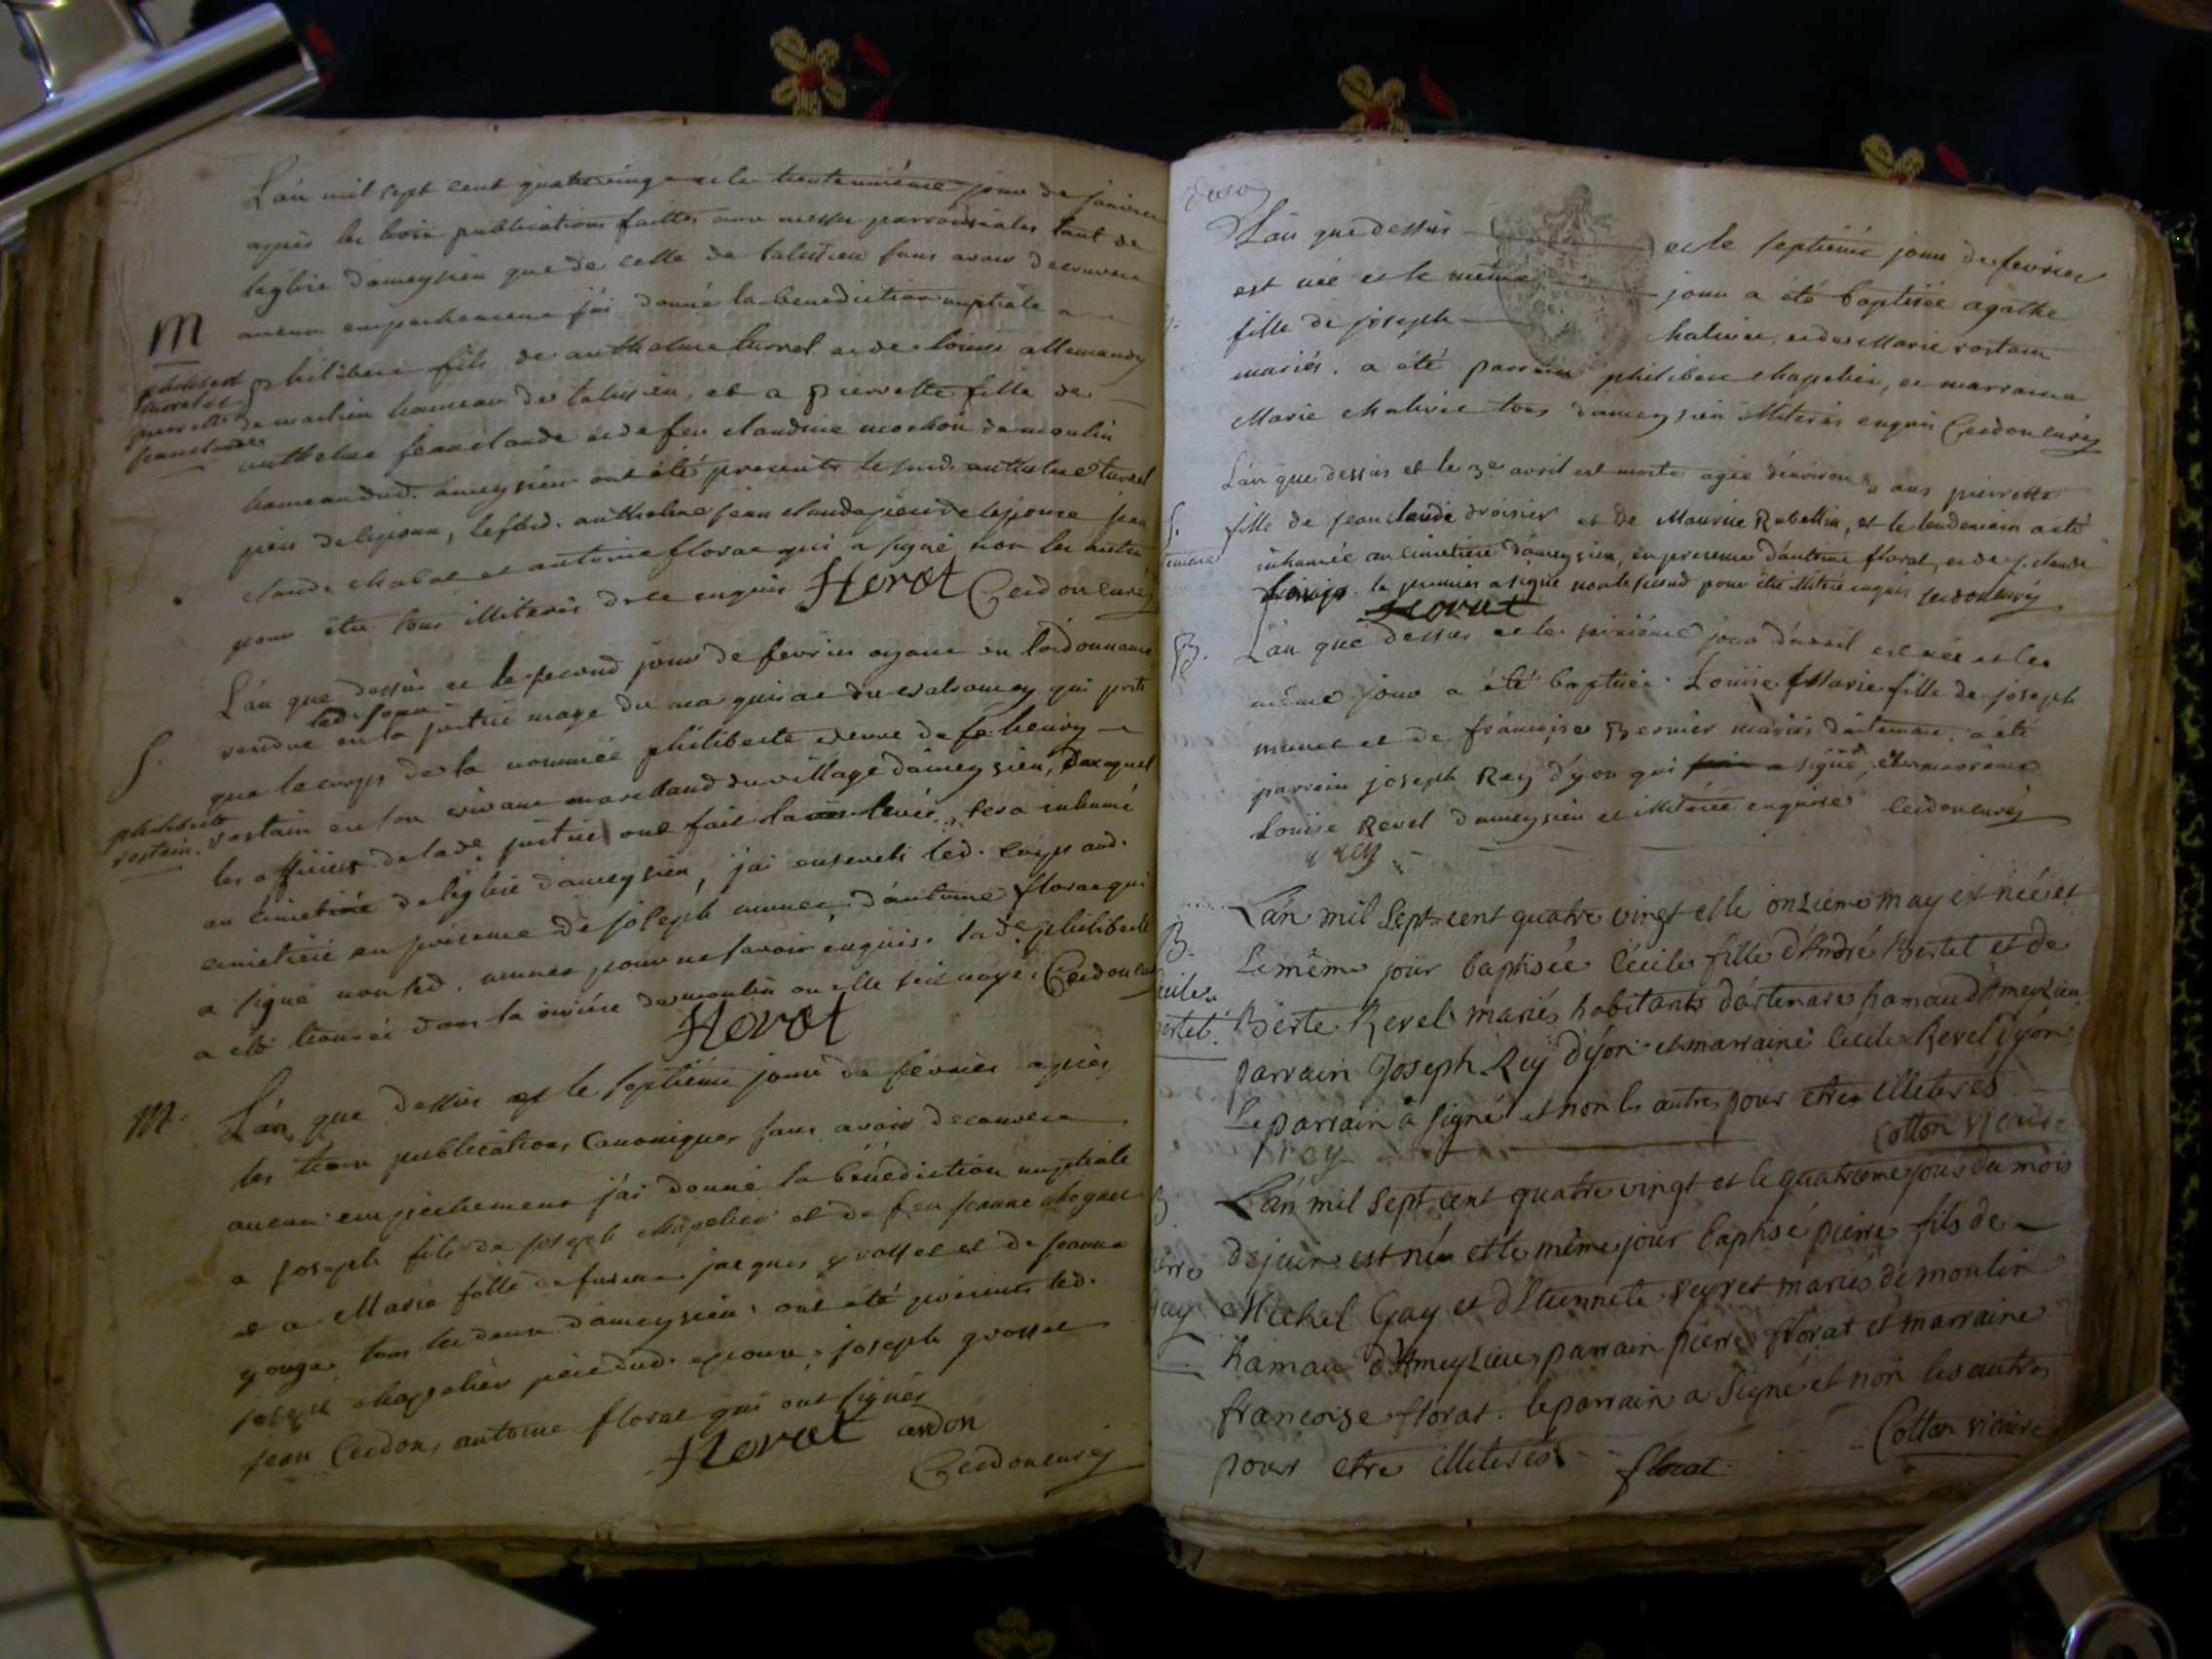 L'an mil sept cent quatre vingt et le trente unième jour de janvier
après les trois publications faittes aux messes parroissiales tant de
l'église d'ameysieu que de celle de talissieu sans avoir decouvert
aucun empechement j'ai donné la benediction nuptiale a
M
philibert fils de anthelme turrel et de louise allemand
de marlieu hameau de talissieu, et a pierrette fille de
anthelme jeanclaude et de feu claudine mochon de moulin
hameau dud. ameysieu ont été presents lesud. anthelme turrel
père de l'epoux, lesud. anthelme jeanclaude père de lepouse jean
claude chabat et antoine florat qui a signé non les autres
pour être tous illiterés de ce enquis Florat Cerdon curé
philibert
turrel et
pierrette
jeanclaude
L'an que dessus et le second jour de fevrier ayant vu l'ordonnance
rendue led. jour en la justice mage du marquisat du valromey qui porte
S.
que le corps de la nommée philiberte veuve de feu henry
rostain en son vivant marchand du village d'ameysieu, duquel
les officiers de lade justice ont fait la levée, sera inhumé
au cimetière de l'église d'ameysieu, j'ai enseveli led. corps aud.
cimetière en présence de joseph munet, d'antoine florat qui
a signé non led. munet pour ne savoir enquis. lade philiberte
a été trouvée dans la rivière du moulin ou elle s'est noyé. Cerdon curé
Florat
philiberte
rostain
M.
L'an que dessus et le septième jour de fevrier après
les trois publications canoniques sans avoir decouvert
aucun empechement j'ai donné la bénédiction nuptiale
a joseph fils de joseph chapelier et de feu jeanne
et a Marie fille de jacques grosset et de jeanne
tous les deux d'ameysieu, ont été présents led.
joseph chapelier père dud. epoux, joseph grosset
jean Cerdon, antoine florat qui ont signés
Florat cerdon
Cerdon curé
L'an que dessus et le septième jour de fevrier
est née et le même jour a été baptisée agathe
fille de joseph chalivée et de Marie rostain
mariés. a été parrein philibert chapelier, et marraine
Marie chalivée tous d'ameysieu illiterés enquis Cerdon curé
L'an que dessus et le 3e avril est morte agée d'environ ans pierrette
S.
fille de jeanclaude droisier et de Maurice Rubellin, et le lendemain a été
inhumée au cimetière d'ameysieu, en presence d'antoine florat, et de j. claude
le premier a signé non le second pour être illitéré enquis Cerdon curé
Florat
B.
L'an que dessus et le jour d'avril est née et le
même jour a été baptisée Louise Marie fille de joseph
munet et de françoise Bernier mariés d'artemare. a été
parrein joseph Rey d'yon qui a signé, et marraine
Louise Revel d'ameysieu illitérée enquise Cerdon curé
rey
L'an mil sept cent quatre vingt et le onzieme may est née et
B.
le même jour baptisée Cécile fille d'André Bertet et de
Berte Revel mariés habitants d'artemare hamau d'Ameyzieu
parrain Joseph Rey d'yon et marraine Cecile Revel d'yon
le parrain a signé et non les autres pour etre illiterés
rey Cotton vicaire
L'an mil sept cent quatre vingt et le quatrieme jour du mois
B
de juin est né et le même jour baptisé pierre fils de
Michel Gay et d'Etiennete veyret mariés de moulin
hamau d'Ameyzieu, parrain pierre florat et marraine
françoise florat. le parrain a signé et non les autres
pour etre illiterés florat Cotton vicaire